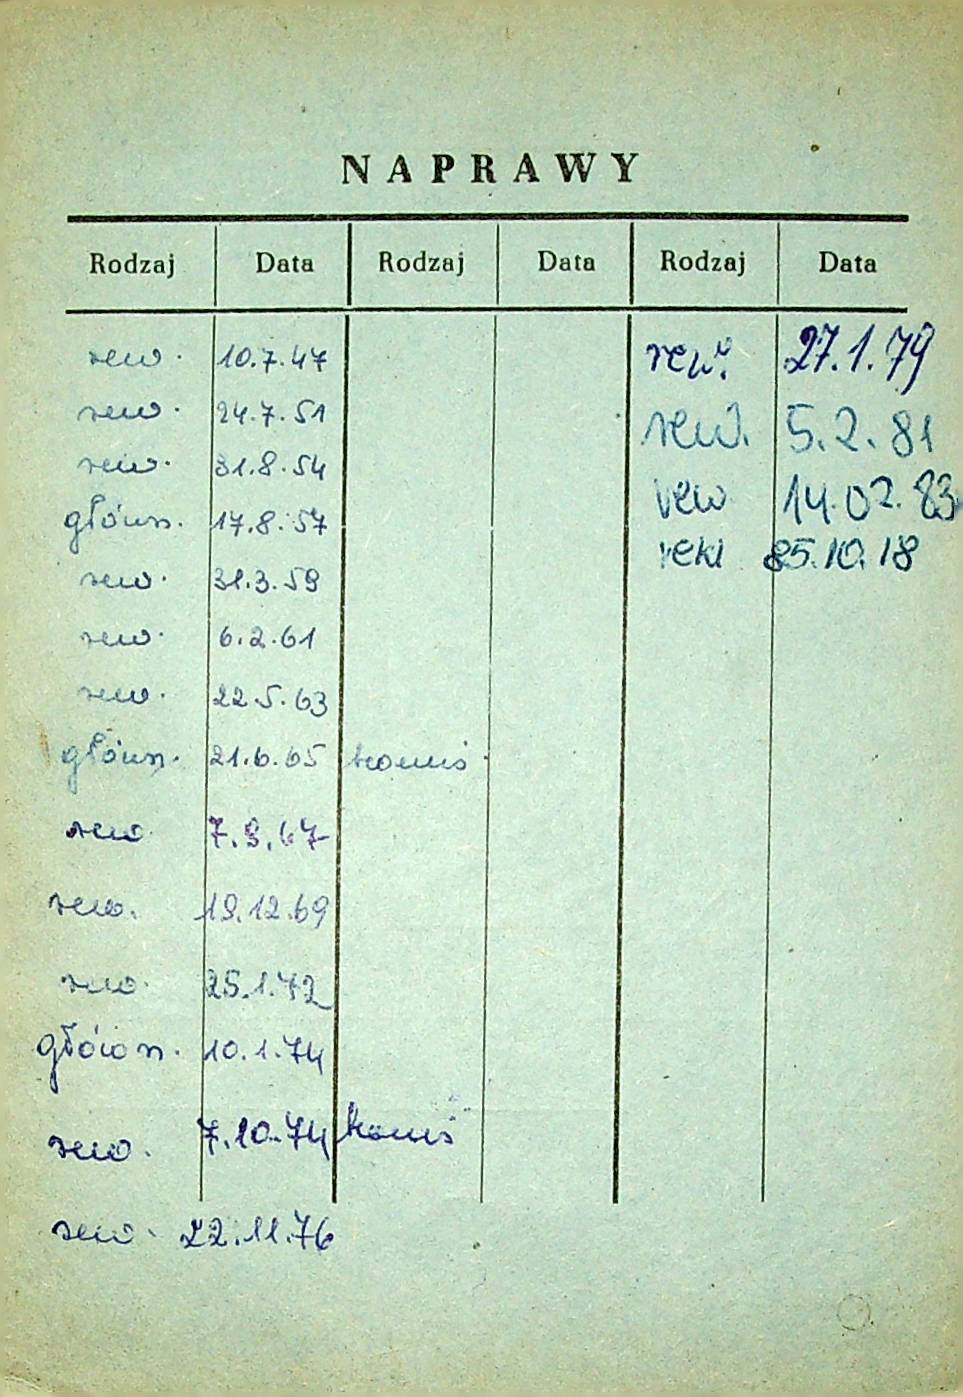 NAPRAWY
Rodzaj Data Rodzaj Data Rodzaj Data
rew. 10.7.47
rew. 24.7.51
rew. 31.8.54
główn. 17.8.57
rew. 31.3.59
rew. 6.2.61
rew. 22.5.63
główn. 21.6.65
rew 7.9.67
rew. 19.12.69
rew. 25.1.72
główn. 10.1.74
rew. 7.10.74
rew. 22.11.76
rew. 27.1.79
rew. 5.2.81
rew 14.02.83
85.10.18